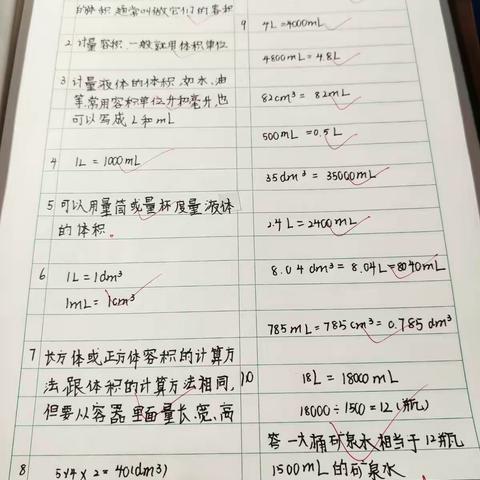 的体积,通常叫做它们的容积
2 计量容积,一般就用体积单位
3 计量液体的体积,如水、油
等,常用容积单位升和毫升,也
可以写成L和mL
4 1L=1000mL
5 可以用量筒或量杯度量液体
的体积.
6 1L=1dm³
1mL=1cm³
7 长方体或正方体容积的计算方
法,跟体积的计算方法相同,
但要从容器里面量长、宽、高
8 5×4×2=40(dm³)
9 4L=4000mL
4800mL=4.8L
82cm³=82mL
500mL=0.5L
35dm³=35000mL
2.4L=2400mL
8.04dm³=8.04L=8040mL
785mL=785cm³=0.785dm³
10 18L=18000mL
18000÷1500=12(瓶)
答:一大桶矿泉水相当于12瓶
1500mL的矿泉水